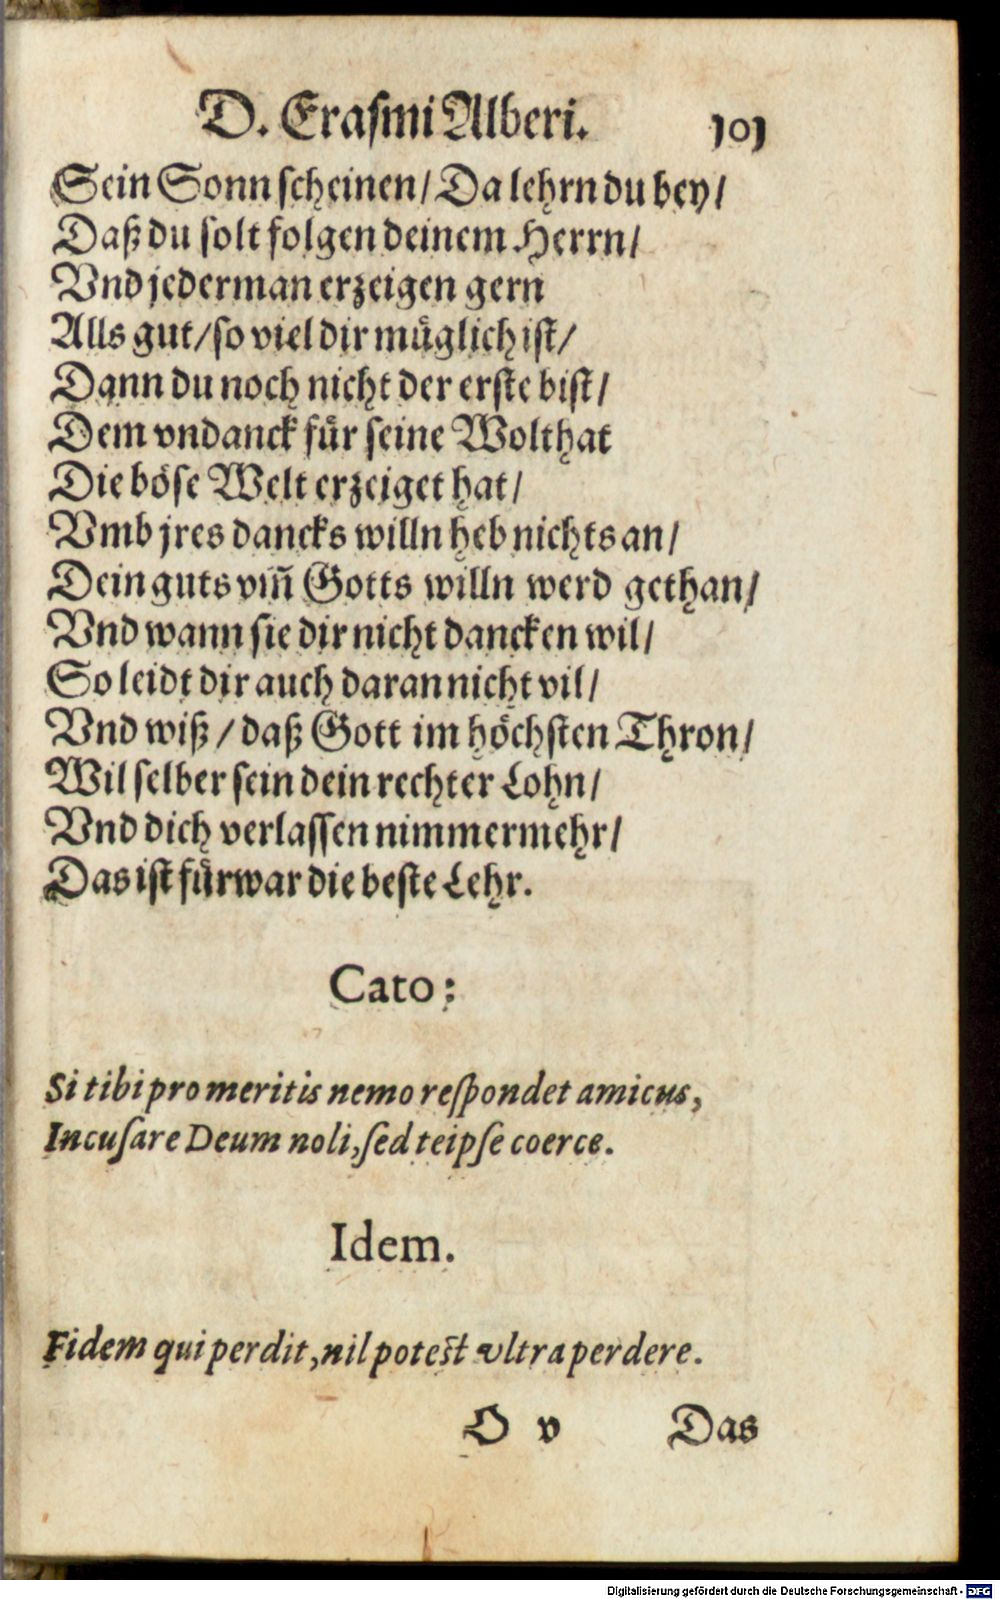 D. Erasmi Alberi. 101
Sein Sonn scheinen/ Da lehrn du bey/
Daß du solt folgen deinem Herrn/
Vnd jederman erzeigen gern
Alls gut/ so viel dir müglich ist/
Dann du noch nicht der erste bist/
Dem vndanck für seine Wolthat
Die böse Welt erzeiget hat/
Vmb jres dancks willn heb nichts an/
Dein guts vm̃ Gotts willn werd gethan/
Vnd wann sie dir nicht dancken wil/
So leidt dir auch daran nicht vil/
Vnd wiß/ daß Gott im höchsten Thron/
Wil selber sein dein rechter Lohn/
Vnd dich verlassen nimmermehr/
Das ist fürwar die beste Lehr.
Cato:
Si tibi pro meritis nemo reſpondet amicus,
Incuſare Deum noli, ſed teipſe coerce.
Idem.
Fidem qui perdit, nil poteſt vltra perdere.
O v Das
Digitalisierung gefördert durch die Deutsche Forschungsgemeinschaft - DFG